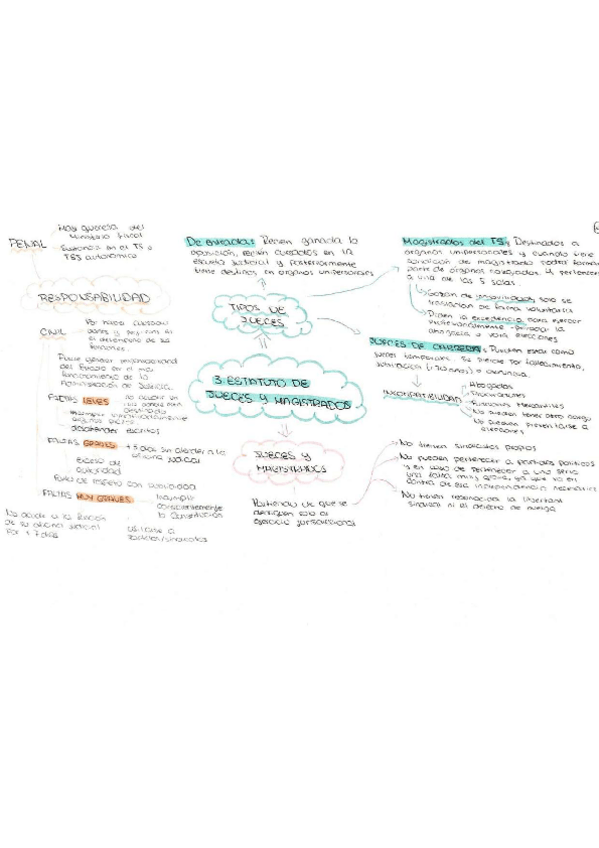 PENAL
Ministerio Fiscal
en el TS o
autonómico
RESPONSABILIDAD
CIVIL
Por haber causado
el desempeño de sus
funciones
Puede generar responsabilidad
del Estado en el mal
funcionamiento de la
Administración de Justicia.
FALTAS LEVES
no acudir
destinado
desatender escritos
FALTAS GRAVES
+5 días sin atender a la
oficina judicial
Exceso de
autoridad
Falta de respeto
FALTAS MUY GRAVES
Incumplir
conscientemente
la Constitución
No acudir a la función
de su oficina judicial
por +7 días
Afiliarse a
partidos/sindicatos
De entrada: Recién ganada la
oposición, recién cursados en la
escuela judicial y posteriormente
tiene destinos en órganos unipersonales
TIPOS DE
JUECES
3. ESTATUTO DE
JUECES Y MAGISTRADOS
JUECES Y
MAGISTRADOS
Partiendo de que se
dediquen solo al
ejercicio jurisdiccional
Magistrados del TS: Destinados a
órganos unipersonales y cuando tiene
condición de magistrado podrá formar
parte de órganos colegiados. Y pertenecer
a una de las 5 salas.
Gozan de inamovilidad solo se
trasladan de forma voluntaria
Piden la excedencia para ejercer
la
abogacía o para elecciones
JUECES DE CARRERA: Pueden estar como
jueces temporales. Se pierde por fallecimiento,
jubilación (70 años) o renuncia.
INCOMPATIBILIDAD
Abogados
Procuradores
Funciones Mercantiles
No pueden tener otro cargo
No pueden presentarse a
elecciones
No tienen sindicatos propios
No pueden pertenecer a partidos políticos
y en caso de pertenecer a uno sería
una falta muy grave, ya que va en
contra de esa independencia necesaria
No tienen reconocida la libertad
sindical ni el derecho de huelga